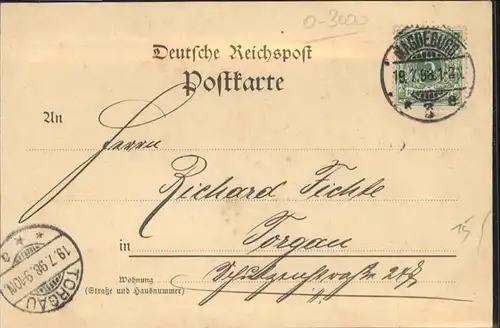 0-3000
MAGDEBURG
19.7.98.1-2N
* 3 e
Deutsche Reichspost
Postkarte
An
Herrn
Richard Fichte
in Torgau
Wohnung
(Straße und Hausnummer)
Schützenstraße
TORGAU
19.7.98.9-10N.
* * a
15